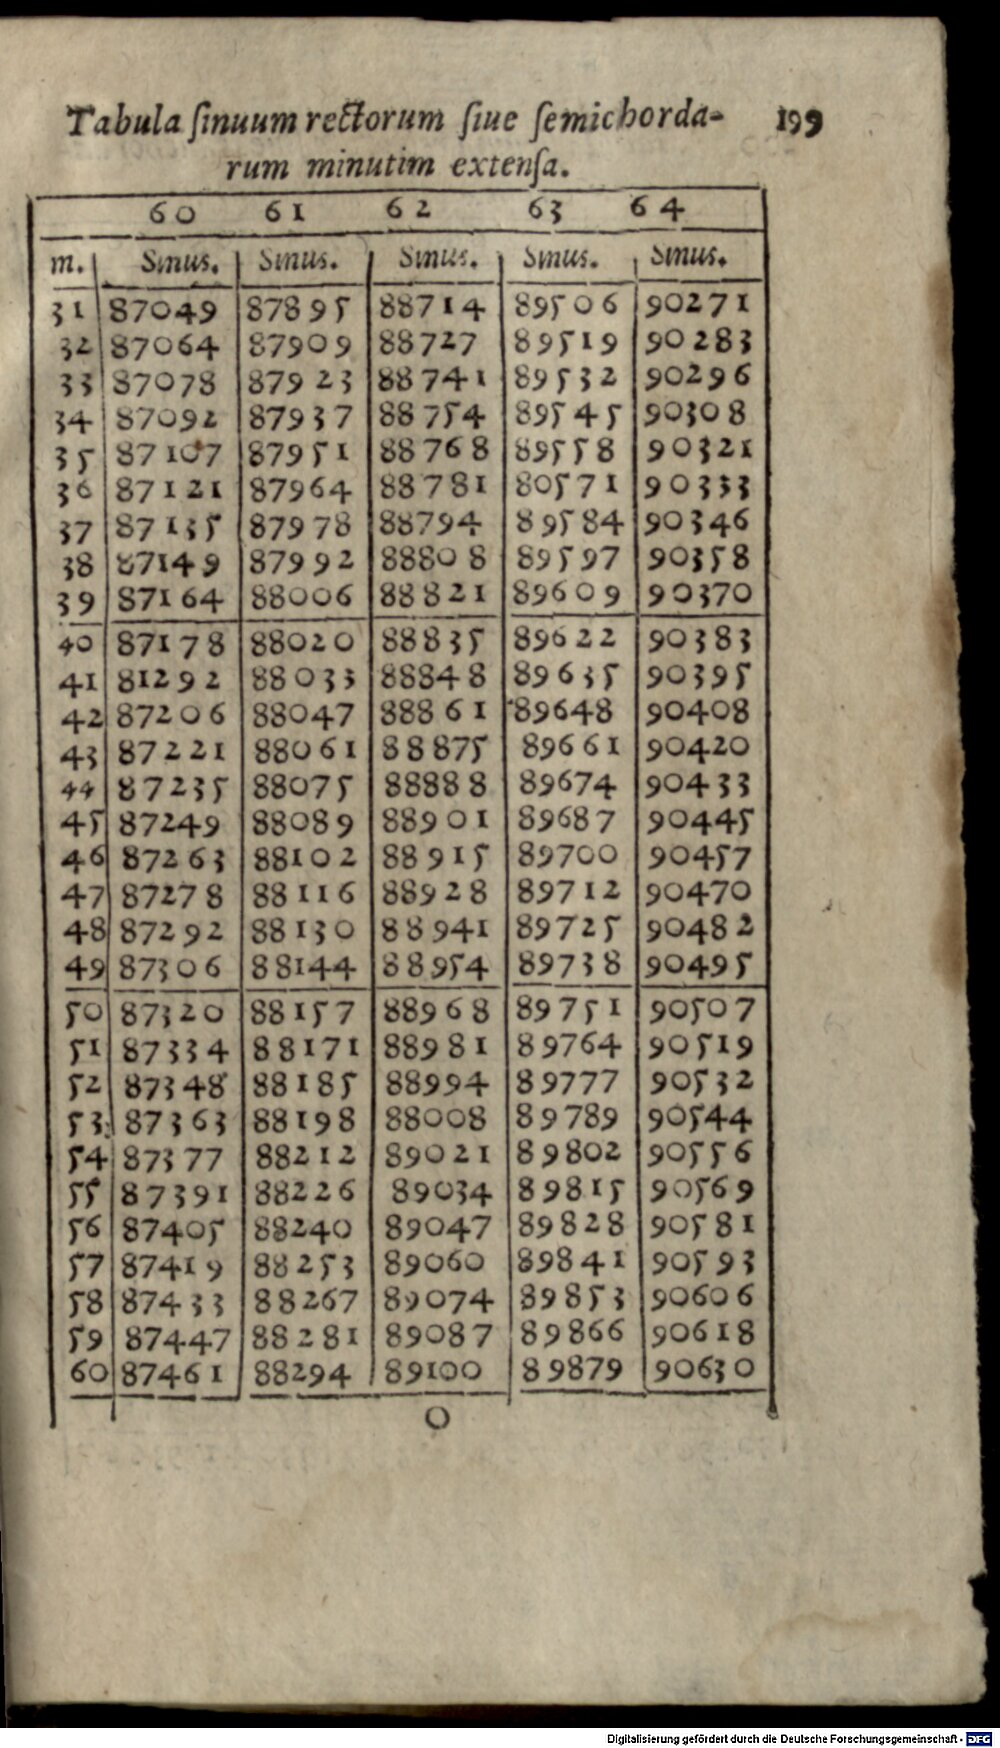 Tabula ſinuum rectorum ſiue ſemichorda- 199
rum minutim extenſa.
60 61 62 63 64
m. Sinus. Sinus. Sinus. Sinus. Sinus.
31 87049 87895 88714 89506 90271
32 87064 87909 88727 89519 90283
33 87078 87923 88741 89532 90296
34 87092 87937 88754 89545 90308
35 87107 87951 88768 89558 90321
36 87121 87964 88781 80571 90333
37 87135 87978 88794 89584 90346
38 87149 87992 88808 89597 90358
39 87164 88006 88821 89609 90370
40 87178 88020 88835 89622 90383
41 81292 88033 88848 89635 90395
42 87206 88047 88861 89648 90408
43 87221 88061 88875 89661 90420
44 87235 88075 88888 89674 90433
45 87249 88089 88901 89687 90445
46 87263 88102 88915 89700 90457
47 87278 88116 88928 89712 90470
48 87292 88130 88941 89725 90482
49 87306 88144 88954 89738 90495
50 87320 88157 88968 89751 90507
51 87334 88171 88981 89764 90519
52 87348 88185 88994 89777 90532
53 87363 88198 88008 89789 90544
54 87377 88212 89021 89802 90556
55 87391 88226 89034 89815 90569
56 87405 88240 89047 89828 90581
57 87419 88253 89060 89841 90593
58 87433 88267 89074 89853 90606
59 87447 88281 89087 89866 90618
60 87461 88294 89100 89879 90630
O
Digitalisierung gefördert durch die Deutsche Forschungsgemeinschaft - DFG